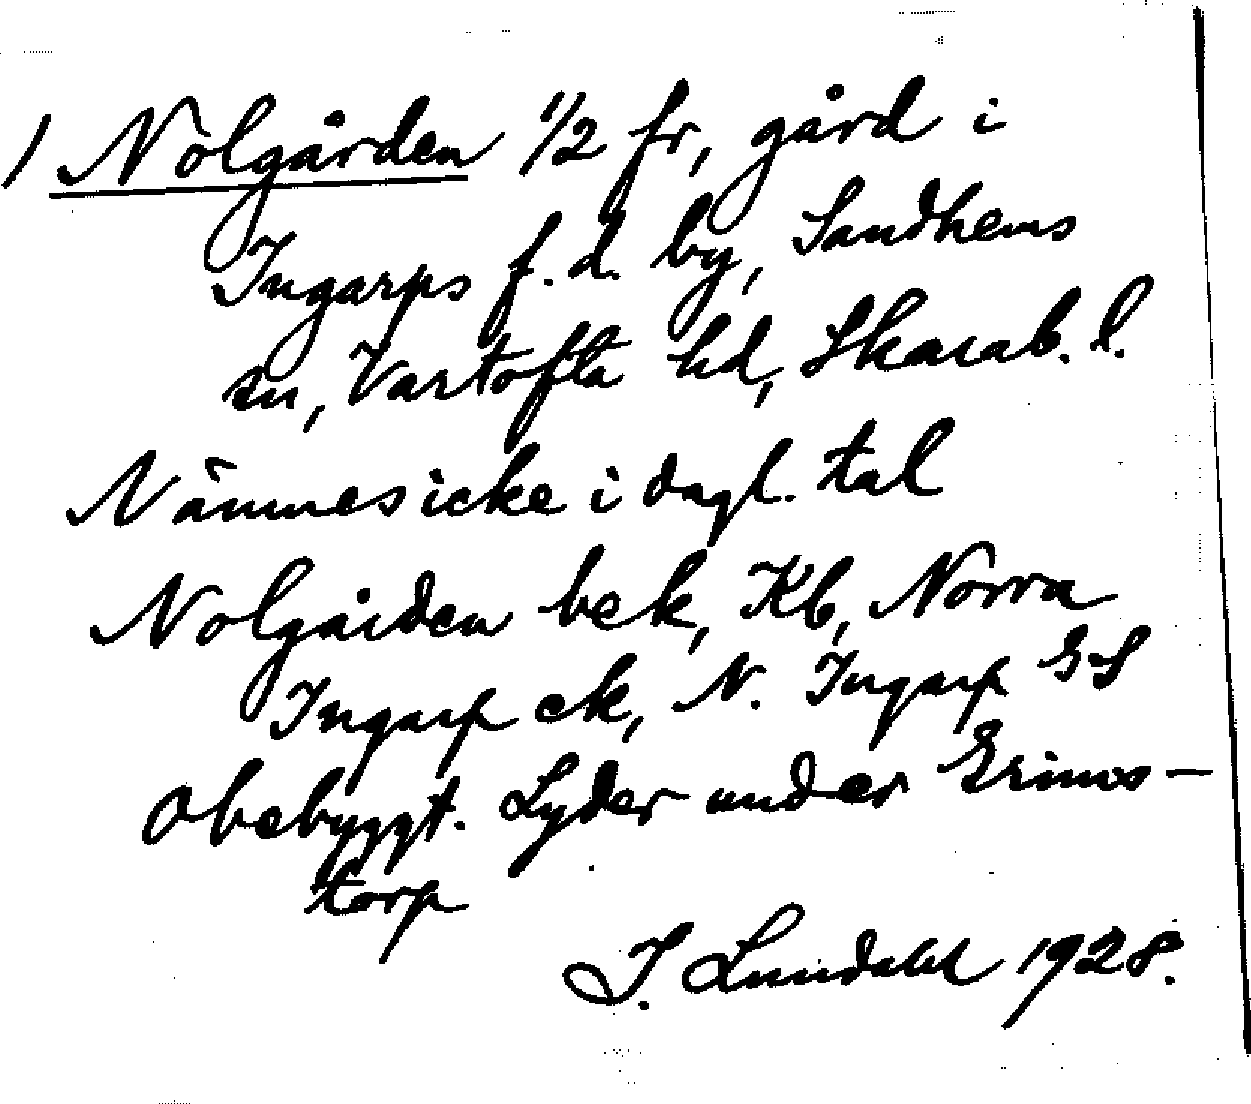 / Nolgården 1/2 fr, gård i
Ingarps f. d. by, Sandhems
sn, Vartofta hd, Skarab. l.
Nämnes icke i dagl. tal
Nolgården bek, Kb, Norra
Ingarp ek, N. Ingarp GS
Obebyggt. Lyder under Grims-
torp
I. Lundahl 1928.